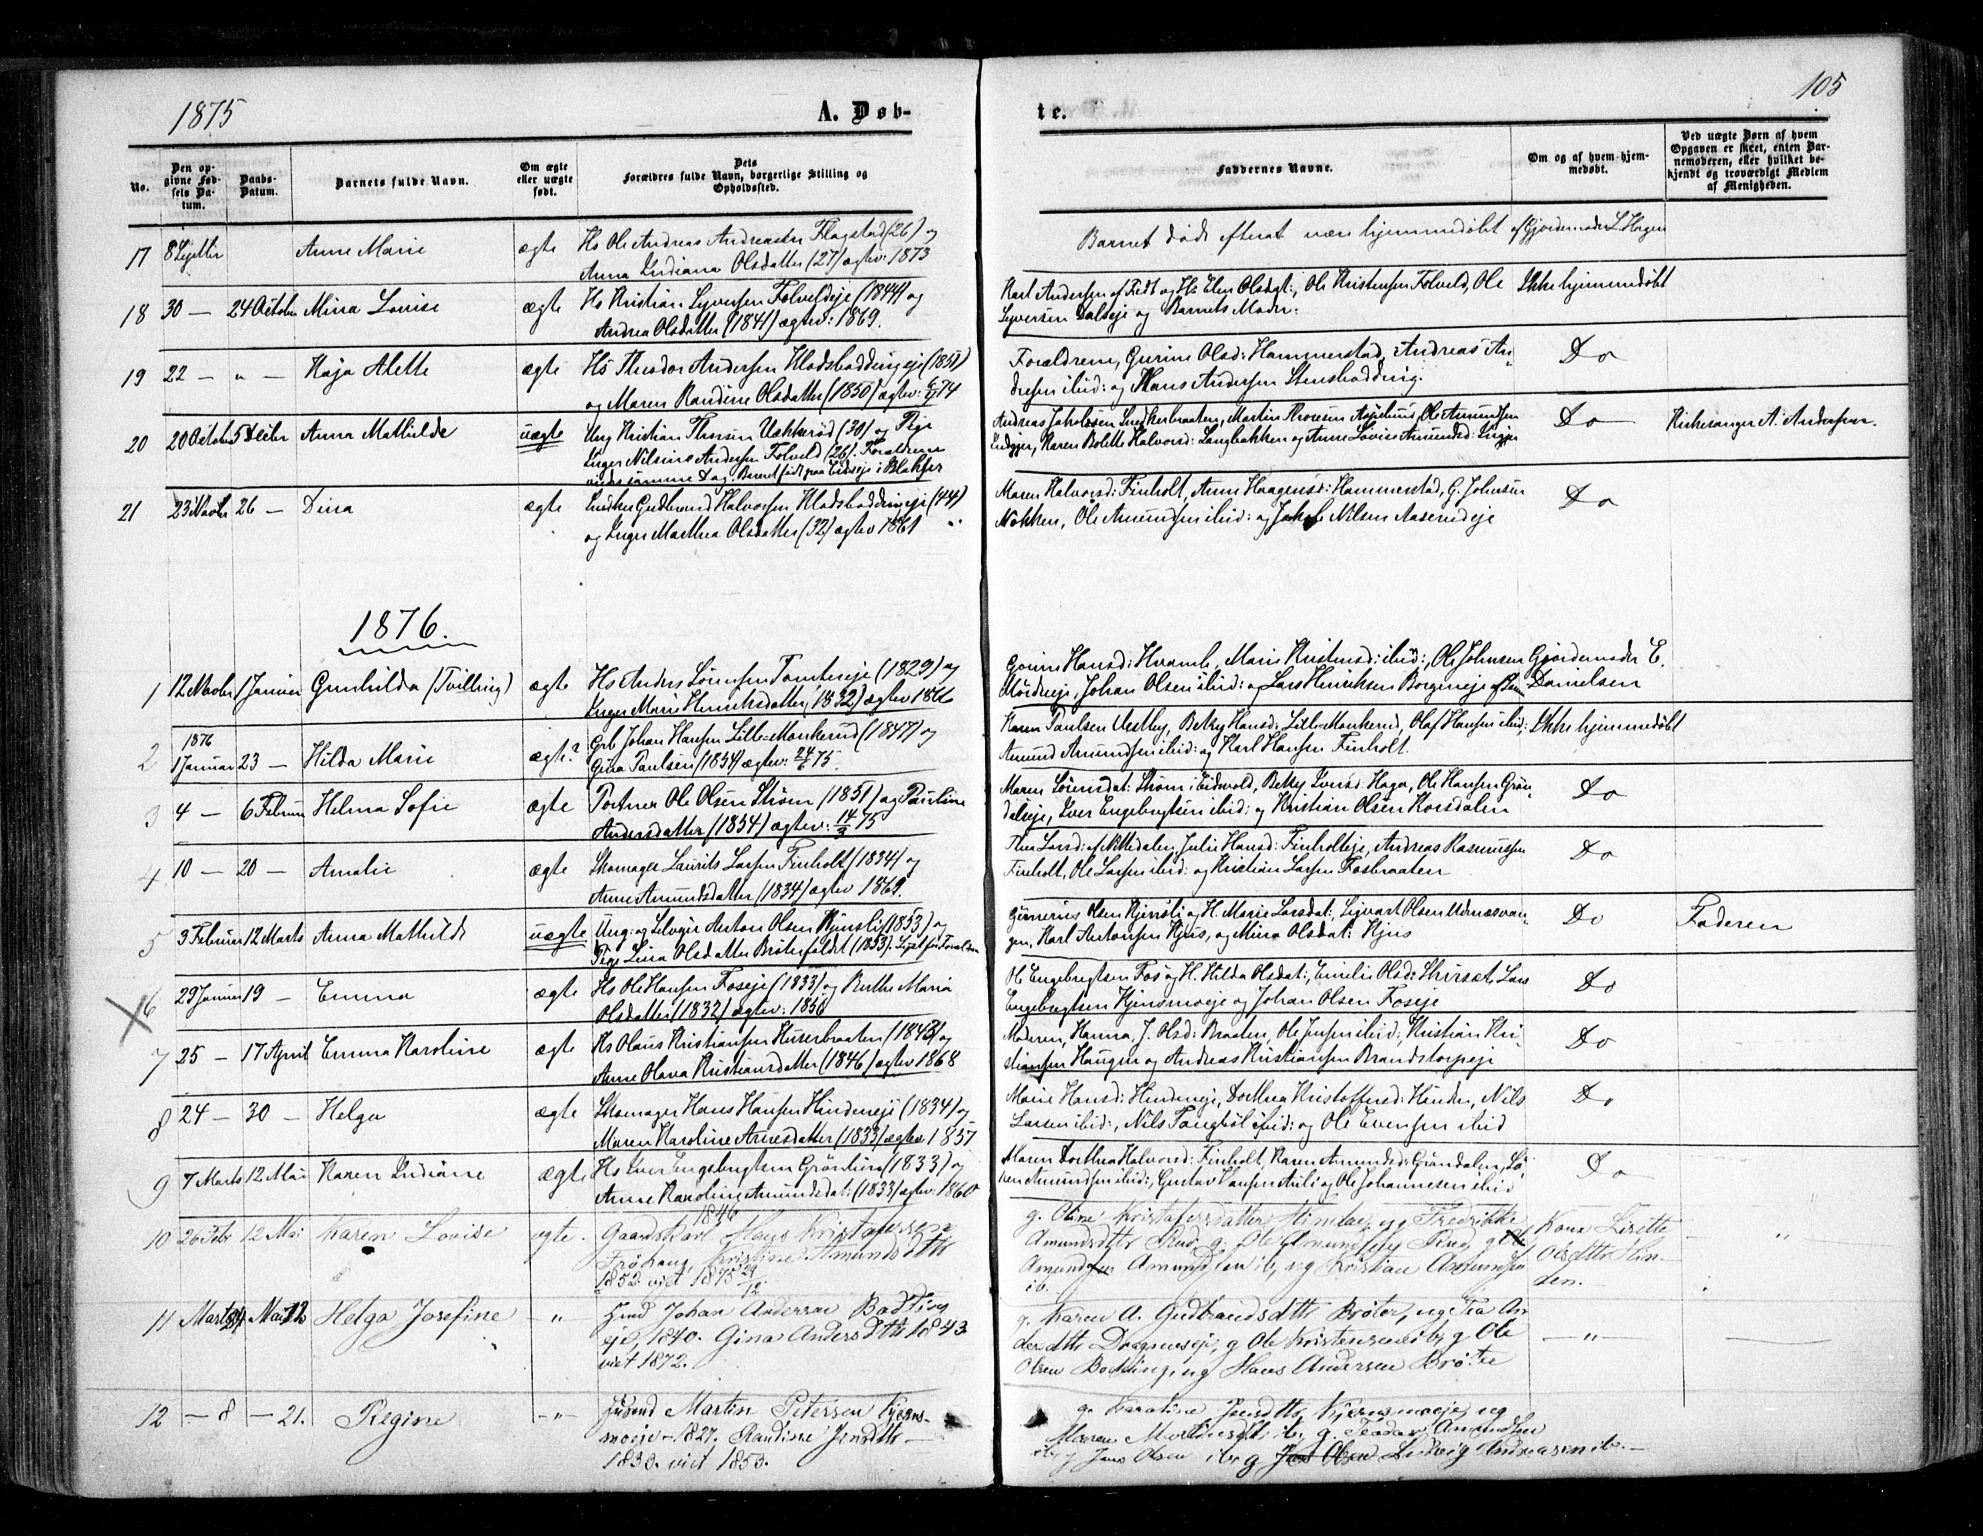 1875
A. Døb-
te.
105
No.
Den op-
givne Fød-
sels Da-
tum.
Daabs-
Datum.
Barnets fulde Navn.
Om ægte
eller uægte
født.
Dets
Forældres fulde Navn, borgerlige Stilling og
Opholdssted.
Faddernes Navne.
Om og af hvem hjem-
medøbt.
Ved uægte Børn af hvem
Opgaven er skeet, enten Bar-
nemoderen, eller hvilket be-
kjendt og troværdigt Medlem
af Menigheden.
17 8 Septbr Anne Marie ægte Hs Ole Andreas Andreasen Flagstad (26) og
Anna Indiana Olsdatter (27) ægtev: 1873
Barnet døde efterat være hjemmedøbt af Gjordemoder L. Hagen
18 30 — 24 Octobr Mina Lovise ægte Hs Kristian Syversen Folveldeje (1844) og
Andrea Olsdatter (1841) ægtev: 1869.
Karl Andersen af Fedt og Hs Elen Olsdat:, Ole Kristensen Folveld, Ole Ikke hjemmedøbt
Syversen Dalseje og Barnets Moder.
19 22 — " — Kaja Alette ægte Hs Theodor Andersen Kladsboddingeje (1851)
og Maren Randine Olsdatter (1850) ægtev: 74
Forældrene, Gurine Olsd: Hammerstad, Andreas An-
dresen ibid: og Hans Andersen Stensbodding. Do
20 20 Octobr 5 Decbr Anna Mathilde uægte Ung. Kristian Thoresen (30) og Pige
Inger Nilsine Andersen Folveld (26). Forældrene
viede samme Dag. Barnet født paa Eidseje i Blakjer
Andreas Jakobsen, Martin Thoresen, Ole Amundsen
Karen Bolette Halvorsd: Langbakken og Anne Lovise Amundsd: Do Kirkesanger A. Andersen.
21 23 Novbr 26 — Dina ægte Gudbrand Halvorsen Kladsboddingeje (44)
og Inger Marthea Olsdatter (32) ægtev 1861
Maren Halvorsd: Finholt, Anne Haagensd: Hammerstad, G. Johnsen
Nokken, Ole Amundsen ibid: og Jakob Nilsen Aaserudeje Do
1876.
1 12 Novbr 1 Januar Gunhilda (Tvilling) ægte Hs Anders Sørensen Tomtereje (1829) og
Inger Marie Henriksdatter (1832) ægtev 1866
Gorine Hansd: Hvamb, Marie Kristensd: ibid:, Ole Johnsen Gjordemoder E.
Mørdreeje, Johan Olsen ibid: og Lars Henriksen Borgeneje Danielsen
2 1876
1 Januar 23 — Hilda Marie ægte? Grb. Johan Hansen Lille-Monkerud (1847) og
Gina Paulsen (1854) ægtev: 24/6 75.
Karen Paulsen Vestby, Betzy Hansd: Lille-Monkerud, Olaf Hansen ibid: Ikke hjemmedøbt
Amund Amundsen ibid: og Karl Hansen Finholt.
3 4 — 6 Februar Helma Sofie ægte Portner Ole Olsen Strøm (1851) og Pauline
Andersdatter (1854) ægtev: 14/3 75
Maren Sørensdat: Strøm i Eidsvold, Betzy Iversd: Haga, Ole Hansen Grøn-
dalseje, Iver Engebrigtsen ibid: og Kristian Olsen Korsdalen Do
4 10 — 20 — Amalie ægte Skomager Laurits Larsen Finholt (1834) og
Anne Amundsdatter (1834) ægtev 1869.
Thea Larsd: af Nittedalen, Julie Hansd: Finholteje, Andreas Rasmussen
Finholt, Ole Larsen ibid: og Kristian Larsen Fosbraaten Do
5 3 Februar 12 Marts Anna Mathilde uægte Ung: og Selveier Anton Olsen Kjensli (1853) og
Pige Lina Olsdatter Brøterfaldet (1853).
Gunerius Olsen Kjensli og H. Marie Larsdat:, Sigvart Olsen Udnæsvan-
gen, Karl Antonsen Kjus, og Mina Olsdat: Kjus Do Faderen
6 29 Januar 19 — Emma ægte Hs Ole Hansen Foseje (1833) og Birthe Maria
Olsdatter (1832) ægtev: 1856
Ole Engebrigtsen Fos og H. Hilda Olsdat:, Emilie Olsd: Skirset, Lars
Engebrigtsen Kjensmoeje og Johan Olsen Foseje Do
7 25 — 17 April Emma Karoline ægte Hs Olaus Kristiansen Huserbraaten (1843) og
Anne Olava Kristiansdatter (1846) ægtev 1868
Moderen, Hanna J. Olsd: Braaten, Ole Jensen ibid: Kristian Kri-
stiansen Haugen og Andreas Kristiansen Brandstorpeje Do
8 24 — 30 — Helga ægte Skomager Hans Hansen Hindeneje (1834) og
Maren Karoline Arnesdatter (1833) ægtev 1857
Marie Hansd: Hindeneje, Dorthea Kristoffersd: Hinden, Nils
Larsen ibid:, Nils Tangbøl ibid: og Ole Evensen ibid Do
9 7 Marts 12 Mai Karen Indiane ægte Hs Iver Engebrigtsen Grønlien (1833) og
Anne Karoline Amundsdat: (1833) ægtev: 1860
Maren Dorthea Halvorsd: Finholt, Karen Amundsd: Grøndalen, Sø-
ren Amundsen ibid:, Gustav Hansen Auli og Ole Johannesen ibid Do
10 26 Febr 12 Mai Karen Lovise ægte. Gaardkarl Hans Kristofersen 1846
Frøhaug, Kristine Amundsdtr
1852 viet 1875 29/12
g. Oline Kristofersdatter Hindeneje, og Fredrikke
Amundsdtr Rud, g. Ole Amundsen Rud, g Ole
Amundsen Amundsen ib, og Kristian Amundsen
ib.
Kona Lisette
Olsdtr Hin-
den. — "
11 Marts 24 Mai 12 Helga Josefine — " — Husmd Johan Andersen Bodding
eje, 1840. Gina Andersdtr 1843
viet 1872.
g. Karen A. Gudbrandsdtr Brøter, og Tea An-
dersdtr Dragneseje, g Ole Kristensen ib, g Ole
Olsen Bodding, og Hans Andersen Brøter — " —
12 — 8 — 21. Regine — " — Husmd Martin Petersen Kjens-
moeje — 1827. Randine Jensdtr —
1830. viet 1853.
g. Karoline Jensdtr Kjensmoeje, og
Maren Martinsdtr ib, g. Teodor Amundsen
ib, g Jens Olsen ib, g Jens Olsen Ludvig Andreasen ib. —